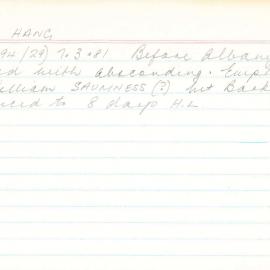 HANG
94/29) 7.3.81 Before Albany
ed with absconding. Empl
illiam SAUMNESS (?) Mt Bark
nced to 8 days H.L.